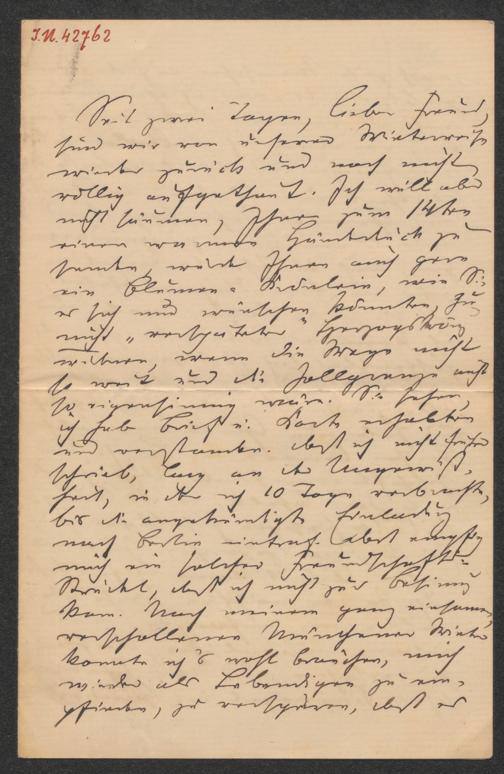 I.N. 42762
Seit zwei Tagen, lieber Freund,
sind wir von unserer Winterreise
wieder zurück und noch nicht
völlig aufgethaut. Ich will aber
nicht säumen, Ihnen zum 14ten
einen warmen Händedruck zu
senden, würde Ihnen auch gern
ein Blumen-Kränzlein, wie Sie
es sich nur wünschen könnten, zu
nicht "verspäteter"
widmen, wenn die Wege nicht
so weit und die Zollgrenze nicht
so eigensinnig wäre. Sie sehen,
ich hab Brief u. Karte erhalten
und verstanden. Daß ich nicht früher
schrieb, lag an der Ungewiß-
heit, in der ich 10 Tage verbrachte,
bis die angekündigte Einladung
nach Berlin eintraf. Dort empfing
mich ein solcher Freundschafts-
Strudel, daß ich nicht zur Besinnung
kam. Nach meinem ganz einsamen,
verschollenen Münchener Winter
konnte ich's wohl brauchen, mich
wieder als Lebendigen zu em-
pfinden, zu verspüren, daß es